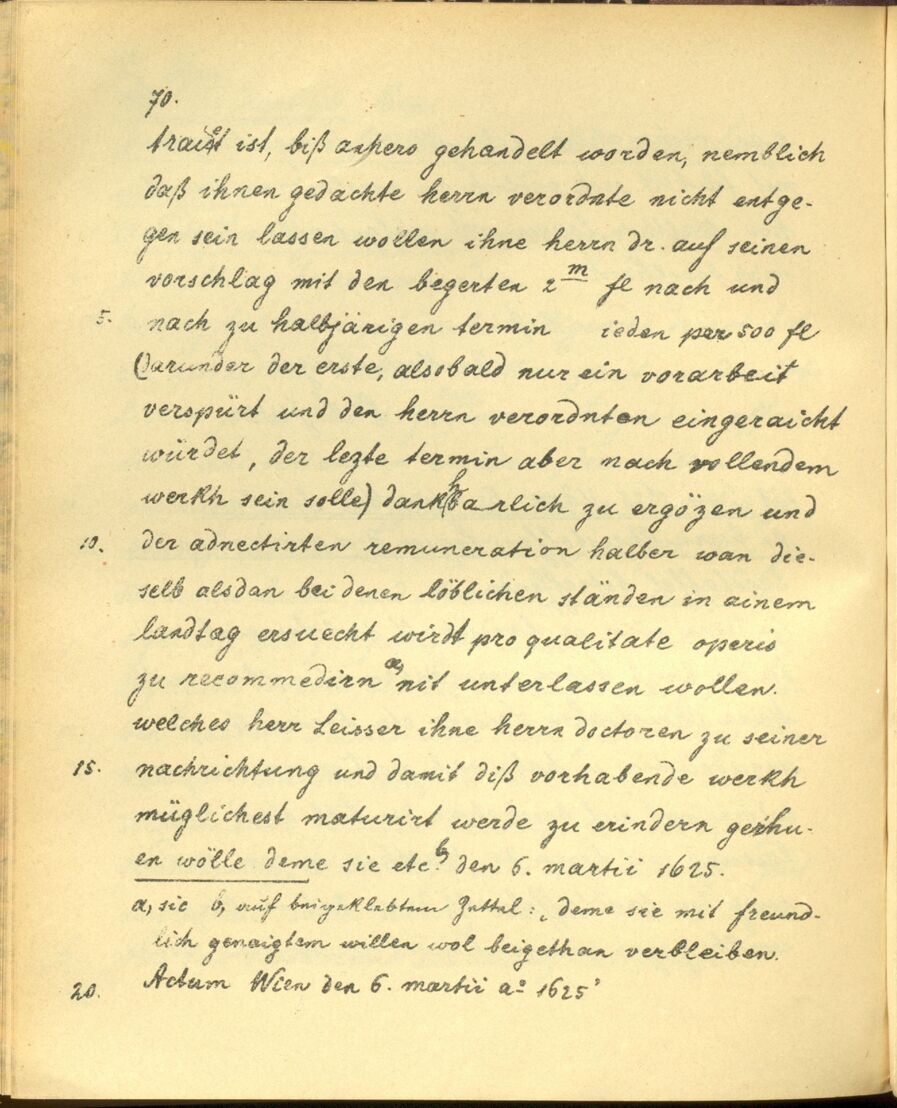 70.
traut ist, biß anhero gehandelt worden, nemblich
daß ihnen gedachte herrn verordnte nicht entge-
gen sein lassen wollen ihne herrn dr. auf seinen
vorschlag mit den begerten 2 m fl nach und
5. nach zu halbjärigen termin ieden per 500 fl
(darunder der erste, alsobald nur ein vorarbeit
verspürt und den herrn verordnten eingeraicht
würdet, der lezte termin aber nach vollendem
werkh sein solle) dankhbarlich zu ergözen und
10. der adnectirten remuneration halber wan die-
selb alsdan bei denen löblichen ständen in ainem
landtag ersuecht wirdt pro qualitate operis
zu recommedirn a, nit unterlassen wollen.
welches herr Leisser ihne herrn doctoren zu seiner
15. nachrichtung und damit diß vorhabende werkh
müglichest maturirt werde zu erindern geruhu-
en wölle deme sie etc. b, den 6. martii 1625.
a, sic b, auf beigeklebtem Zettel: „deme sie mit freund-
lich genaigtem willen wol beigethan verbleiben.
20. Actum Wien den 6. martii aº 1625"